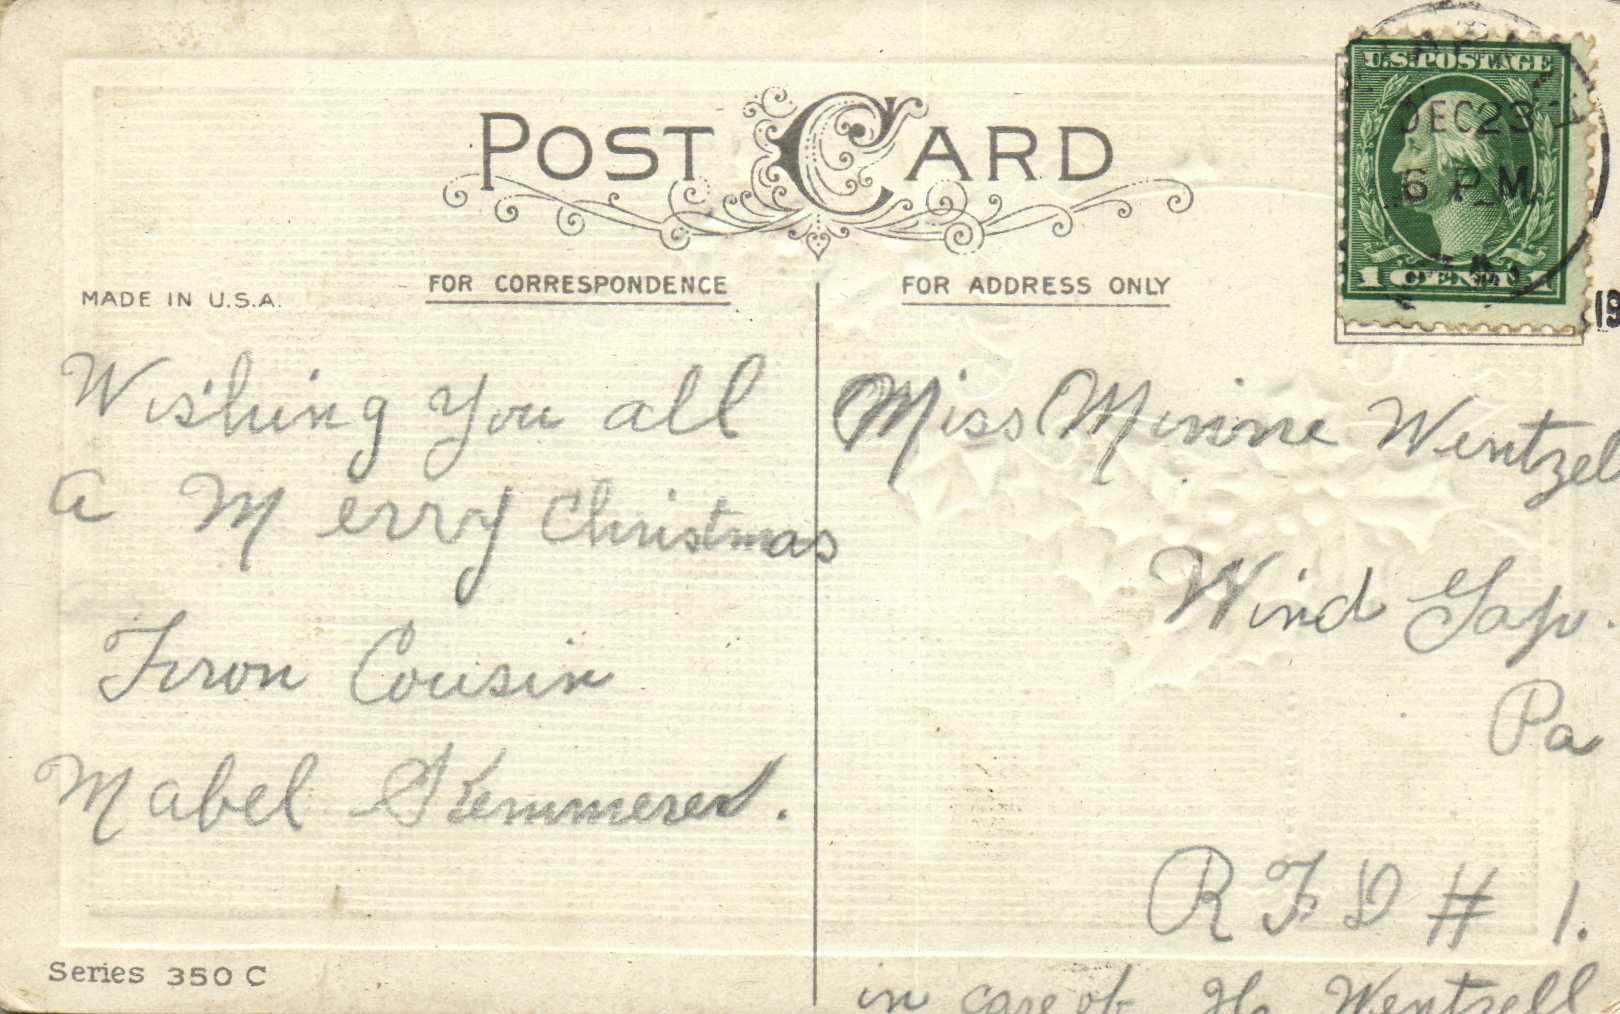 POST CARD
U.S. POSTAGE
DEC 23
6 P M
19
MADE IN U.S.A.
FOR CORRESPONDENCE
FOR ADDRESS ONLY
Wishing you all
a Merry Christmas
From Cousin
Mabel Kemmerer.
Miss Minne Wentzel
Wind Gap.
Pa
R F D # 1.
in care of H. Wentzell
Series 350 C